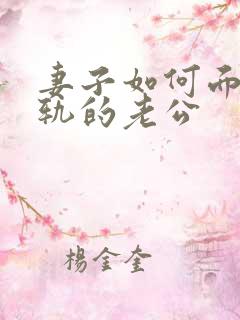 妻子如何而
轨的老公
杨金奎